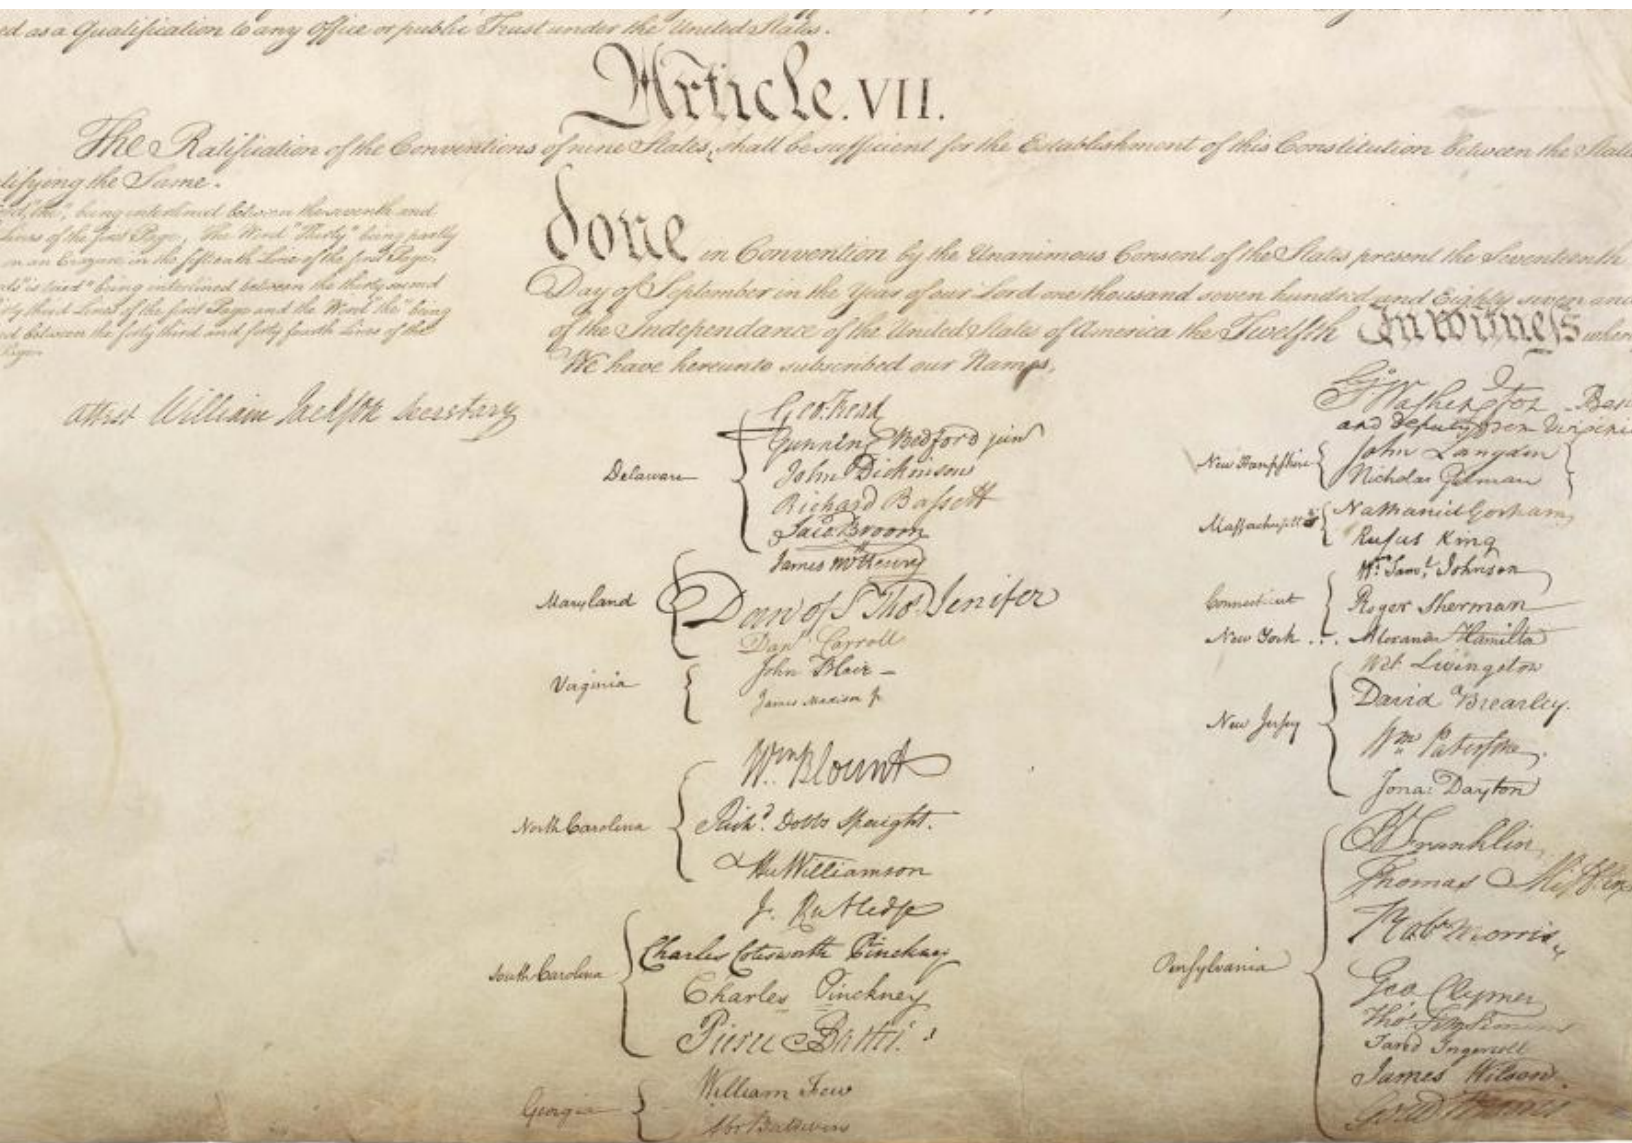 ed as a Qualification to any Office or public Trust under the United States.
Article. VII.
The Ratification of the Conventions of nine States, shall be sufficient for the Establishment of this Constitution between the States
tifying the Same.
"the", being interlined between the seventh and
Lines of the first Page, The Word "Thirty" being partly
on an Erazure in the fifteenth Line of the first Page,
"is tried" being interlined between the thirty second
thirty third Lines of the first Page and the Word "the" being
ed between the forty third and forty fourth Lines of the
Page.
done in Convention by the Unanimous Consent of the States present the Seventeenth
Day of September in the Year of our Lord one thousand seven hundred and Eighty seven and
of the Independance of the United States of America the Twelfth In witness where
We have hereunto subscribed our Names,
attest William Jackson Secretary
Delaware
Geo: Read
Gunning Bedford jun
John Dickinson
Richard Bassett
Jaco: Broom
Maryland
James McHenry
Dan of St Thos. Jenifer
Danl. Carroll
Virginia
John Blair –
James Madison Jr.
North Carolina
Wm. Blount
Richd. Dobbs Spaight.
Hu Williamson
South Carolina
J. Rutledge
Charles Cotesworth Pinckney
Charles Pinckney
Pierce Butler.
Georgia
William Few
Abr Baldwin
Go. Washington
and deputy from Virginia
New Hampshire
John Langdon
Nicholas Gilman
Massachusetts
Nathaniel Gorham
Rufus King
Connecticut
Wm. Saml. Johnson
Roger Sherman
New York . . . Alexander Hamilton
New Jersey
Wil: Livingston
David Brearley.
Wm. Paterson.
Jona: Dayton
Pensylvania
B Franklin
Thomas Mifflin
Robt. Morris
Geo. Clymer
Thos. FitzSimons
Jared Ingersoll
James Wilson.
Gouv Morris